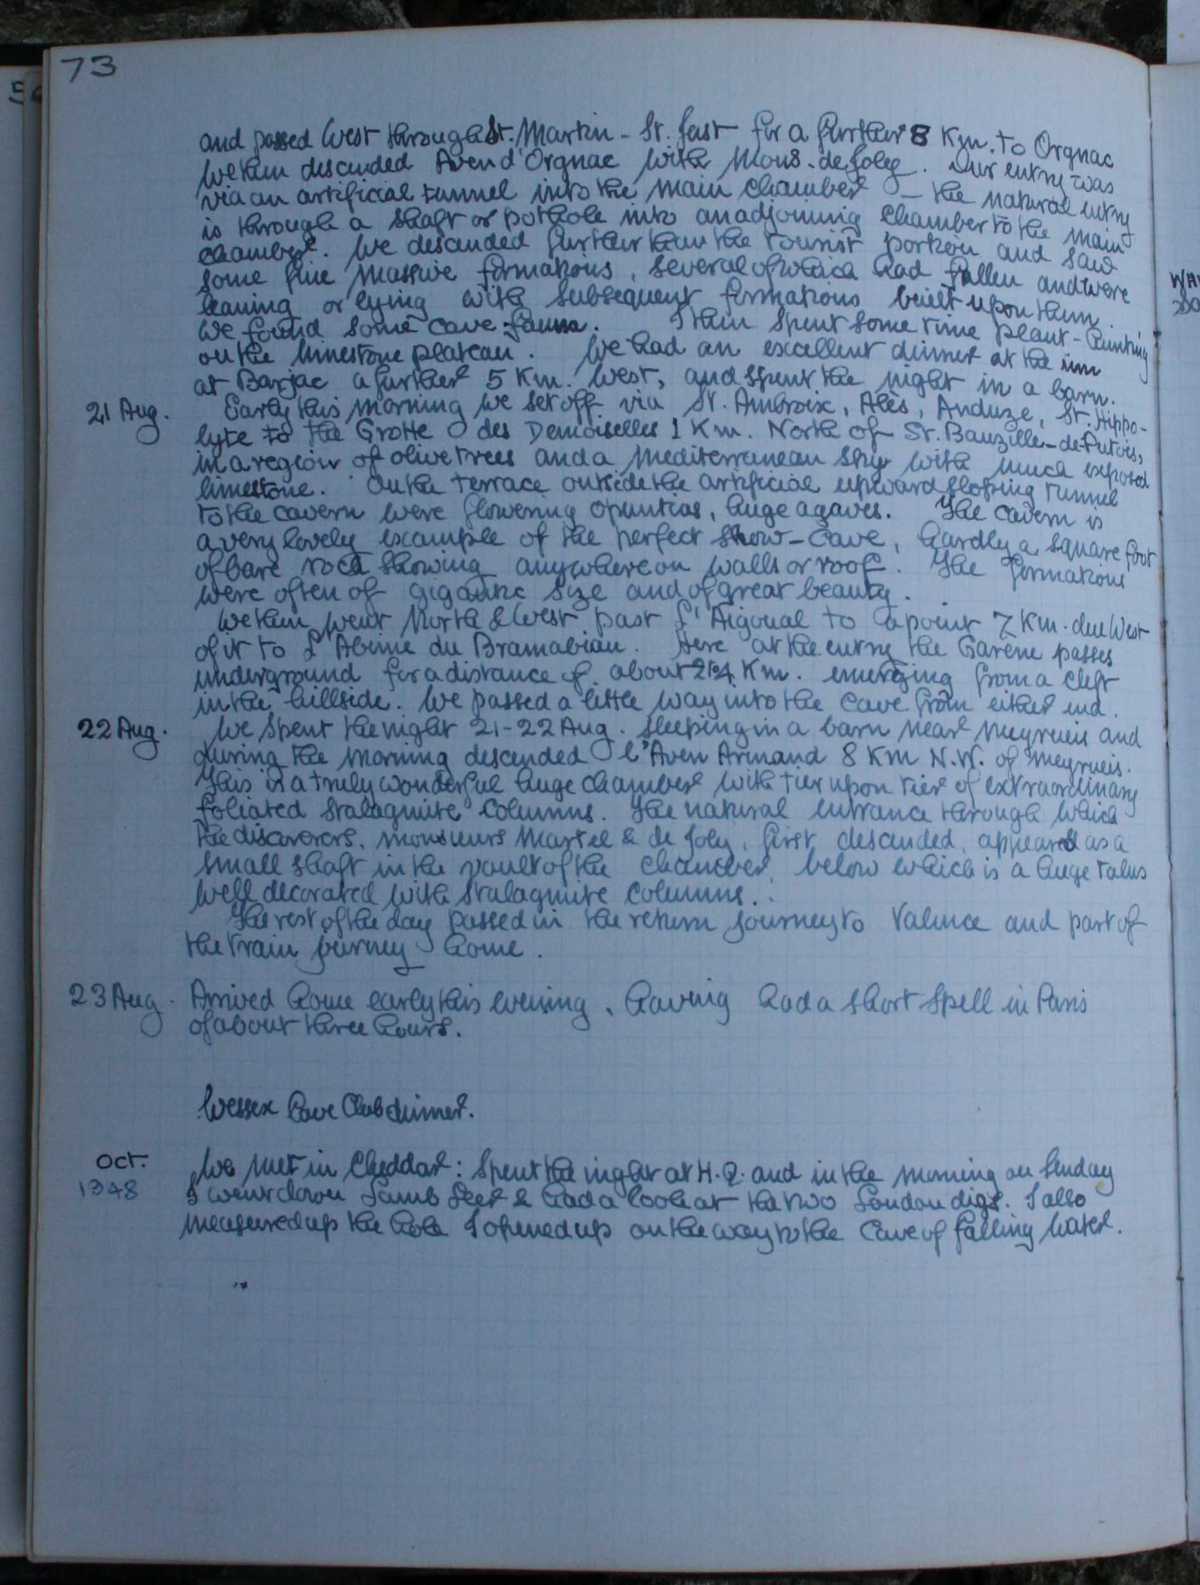 73
and passed West through St. Martin - St. Just for a further 8 Km. to Orgnac
We then descended Aven d'Orgnac with Mons. de Joly. Our entry was
via an artificial tunnel into the main chamber - the natural entry
is through a shaft or pothole into an adjoining chamber to the main
chamber. We descended further than the tourist portion and saw
some fine massive formations, several of which had fallen and were
leaning or lying with subsequent formations built upon them.
We found some cave-fauna. I then spent some time plant-hunting
on the limestone plateau. We had an excellent dinner at the inn
at Barjac a further 5 Km. West, and spent the night in a barn.
21 Aug. Early this morning we set off via St. Ambroix, Alès, Anduze, St. Hippo-
lyte to the Grotte des Demoiselles 1 Km. North of St. Bauzille-de-Putois,
in a region of olive trees and a mediterranean sky with much exposed
limestone. On the terrace outside the artificial upward sloping tunnel
to the cavern were flowering opuntias, huge agaves. The cavern is
a very lovely example of the perfect show-cave, hardly a square foot
of bare rock showing anywhere on walls or roof. The formations
were often of gigantic size and of great beauty.
We then went North & West past L'Aigoual to a point 7 Km. due West
of it to L'Abime du Bramabiau. Here at the entry the
underground for a distance of about Km. emerging from a cleft
in the hillside. We passed a little way into the cave from either end.
22 Aug. We spent the night 21-22 Aug. sleeping in a barn near Meyrueis and
during the morning descended l'Aven Armand 8 Km N.W. of Meyrueis.
This is a truly wonderful huge chamber with tier upon tier of extraordinary
foliated stalagmite columns. The natural entrance through which
the discoverers, Monsieurs Martel & de Joly, first descended, appeared as a
small shaft in the vault of the chamber, below which is a huge talus
well decorated with stalagmite columns.
The rest of the day passed in the return journey to Valence and part of
the train journey home.
23 Aug. Arrived home early this evening, having had a short spell in Paris
of about three hours.
Wessex Cave Club dinner.
Oct. We met in Cheddar: Spent the night at H.Q. and in the morning on Sunday
1948 I went down Lamb Leer & had a look at the two London digs. I also
measured up the hole I opened up on the way to the Cave of Falling Water.